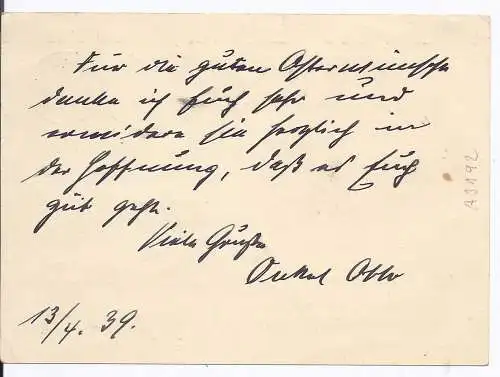 Für die guten Osterwünsche
danke ich Euch sehr und
erwidere sie herzlich in
der Hoffnung, daß es Euch
gut geht.
Viele Grüße
Onkel Otto
13/4. 39.
A3192